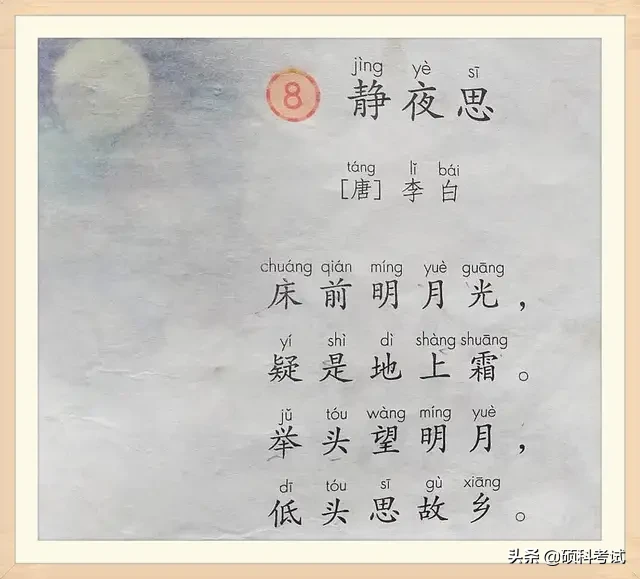 jìng yè sī
8 静夜思
táng lǐ bái
[唐] 李白
chuáng qián míng yuè guāng
床前明月光，
yí shì dì shàng shuāng
疑是地上霜。
jǔ tóu wàng míng yuè
举头望明月，
dī tóu sī gù xiāng
低头思故乡。
头条 @硕科考试